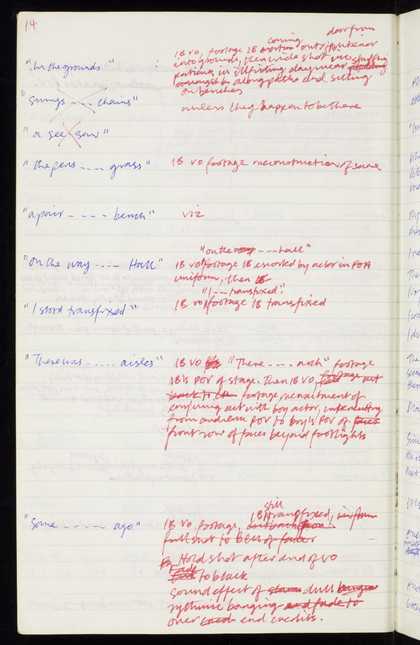 14
"In the grounds" : IB VO, footage IB coming out of exterior door from
into grounds, then wide shot
patients in illfitting daywear
along paths and sitting
on benches
"Swings ---- chains" unless they happen to be there
"a see-saw"
"the pens ---- grass" IB VO footage reconstruction of same
"a pair - - - - bench" viz
"on the way ---- Hall" "on the way --- hall"
IB VO/footage IB escorted by actor in POA
uniform, then IB
"I --- transfixed"
"I stood transfixed" IB VO/footage IB transfixed
"There was ----- aisles" IB VO "There ---- arch" footage
IB's POV of stage. Then IB VO, footage act
footage, reenactment of
conjuring act with boy actor, intercutting
from audience POV to boy's POV of faces
front row of faces beyond footlights
"Some ------ ago" IB VO footage, IB still transfixed,
full shot to BCU of face
Hold shot after end of VO
Fade
to black
Sound effect of dull
rythmic banging and fade to
over end credits.